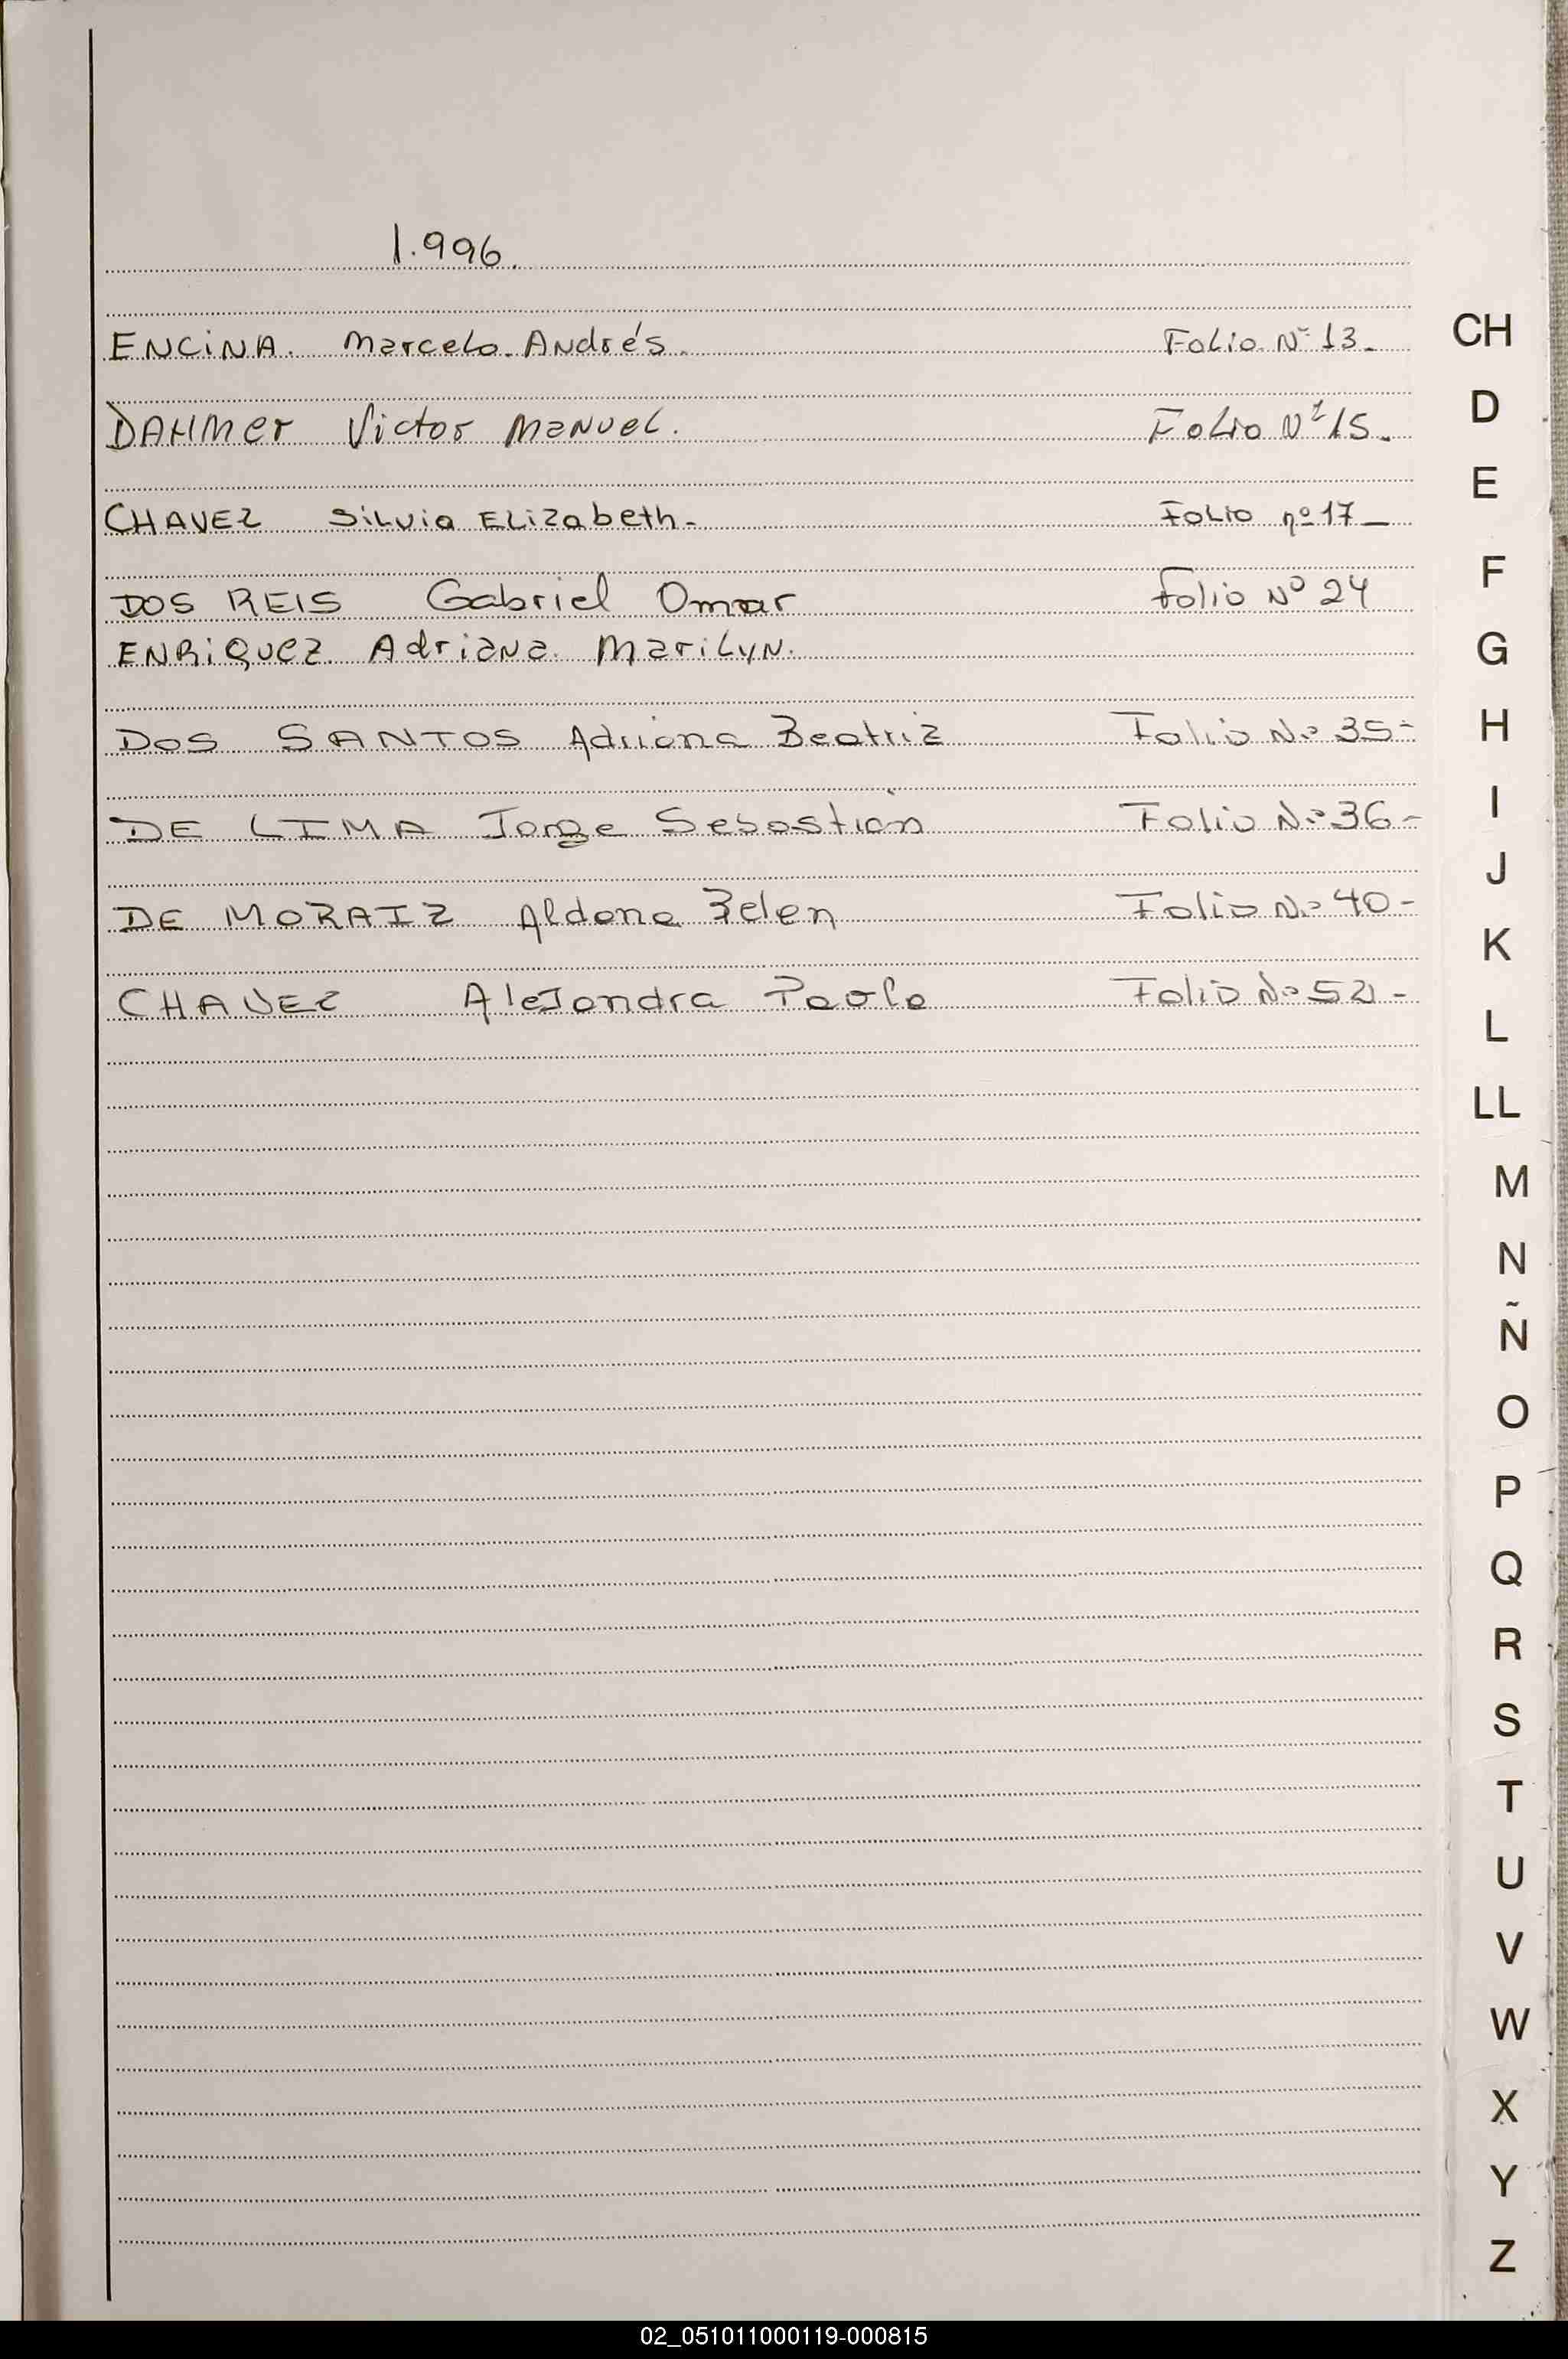 1.996.
ENCINA. Marcelo Andrés. Folio Nº 13.
DAHMER Victor Manuel. Folio Nº 15.
CHAVEZ Silvia Elizabeth. Folio nº 17
DOS REIS Gabriel Omar Folio Nº 24
ENRIQUEZ Adriana Marilyn.
DOS SANTOS Adriana Beatriz Folio N.º 35-
DE LIMA Jorge Sebastián Folio N.º 36-
DE MORAIZ Aldana Belen Folio N.º 40-
CHAVEZ Alejandra Paola Folio Nº -
CH
D
E
F
G
H
I
J
K
L
LL
M
N
Ñ
O
P
Q
R
S
T
U
V
W
X
Y
Z
02_051011000119-000815